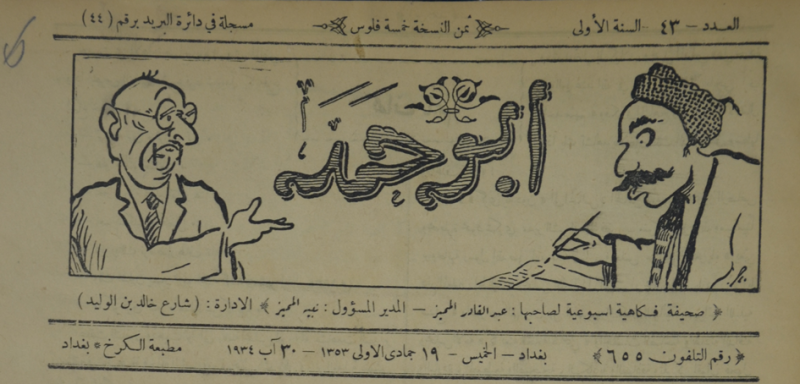 العدد — ٤٣ السنة الأولى ثمن النسخة خمسة فلوس مسجلة في دائرة البريد برقم (٤٤)
أبو حمد
﴿ صحيفة فكاهية اسبوعية لصاحبها : عبدالقادر المميز — المدير المسؤول : نبيه المميز ﴾ الادارة : (شارع خالد بن الوليد)
﴿ رقم التلفون ٦٥٥ ﴾ بغداد — الخميس - ١٩ جمادى الاولى ١٣٥٣ — ٣٠ آب ١٩٣٤ مطبعة الكرخ * بغداد